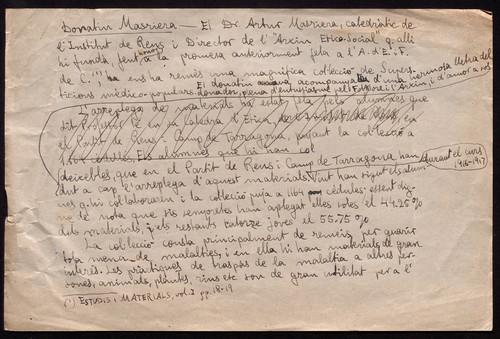 Donatiu Masriera — El Dr. Artur Masriera, catedràtic de
l'Institut de Reus i Director de l'"Arxiu Etico-Social" q. allí
hi fundà, fent honor a la promesa anteriorment feta a l'A. d'E. i F.
de C. (1) ens ha remès una magnífica col·lecció de Supers-
ticions mèdico-populars. El donatiu anava acompanyat d'una lletra del
donador, plena d'entusiasme pel Folklore i l'Arxiu, i d'amor a
L'arreplega de materials ha estat feta pels alumnes que
dit Professor té en sa càtedra d'Etica,
el Partit de Reus i Camp de Tarragona, pujant la col·lecció a
cèdules. Els alumnes que hi han col
deixebles, que en el Partit de Reus i Camp de Tarragona han durant el curs 1916-1917
dut a cap l'arreplega d'aquest materials. Vint han sigut els alum-
nes q. hi col·laboraren i la col·lecció puja a 1164 cèdules; essent dig-
ne de nota que sis senyoretes han aplegat elles soles el 44.25%
dels materials, i els restants catorze joves el 55.75%
La col·lecció consta principalment de remeis per guarir
tota mena de malalties, i en ella hi han materials de gran
interès. Les pràctiques de traspàs de la malaltia a altres per-
sones, animals, plantes, rius etc son de gran utilitat per a l'
(1) ESTUDIS i MATERIALS, vol. I pp. 18-19